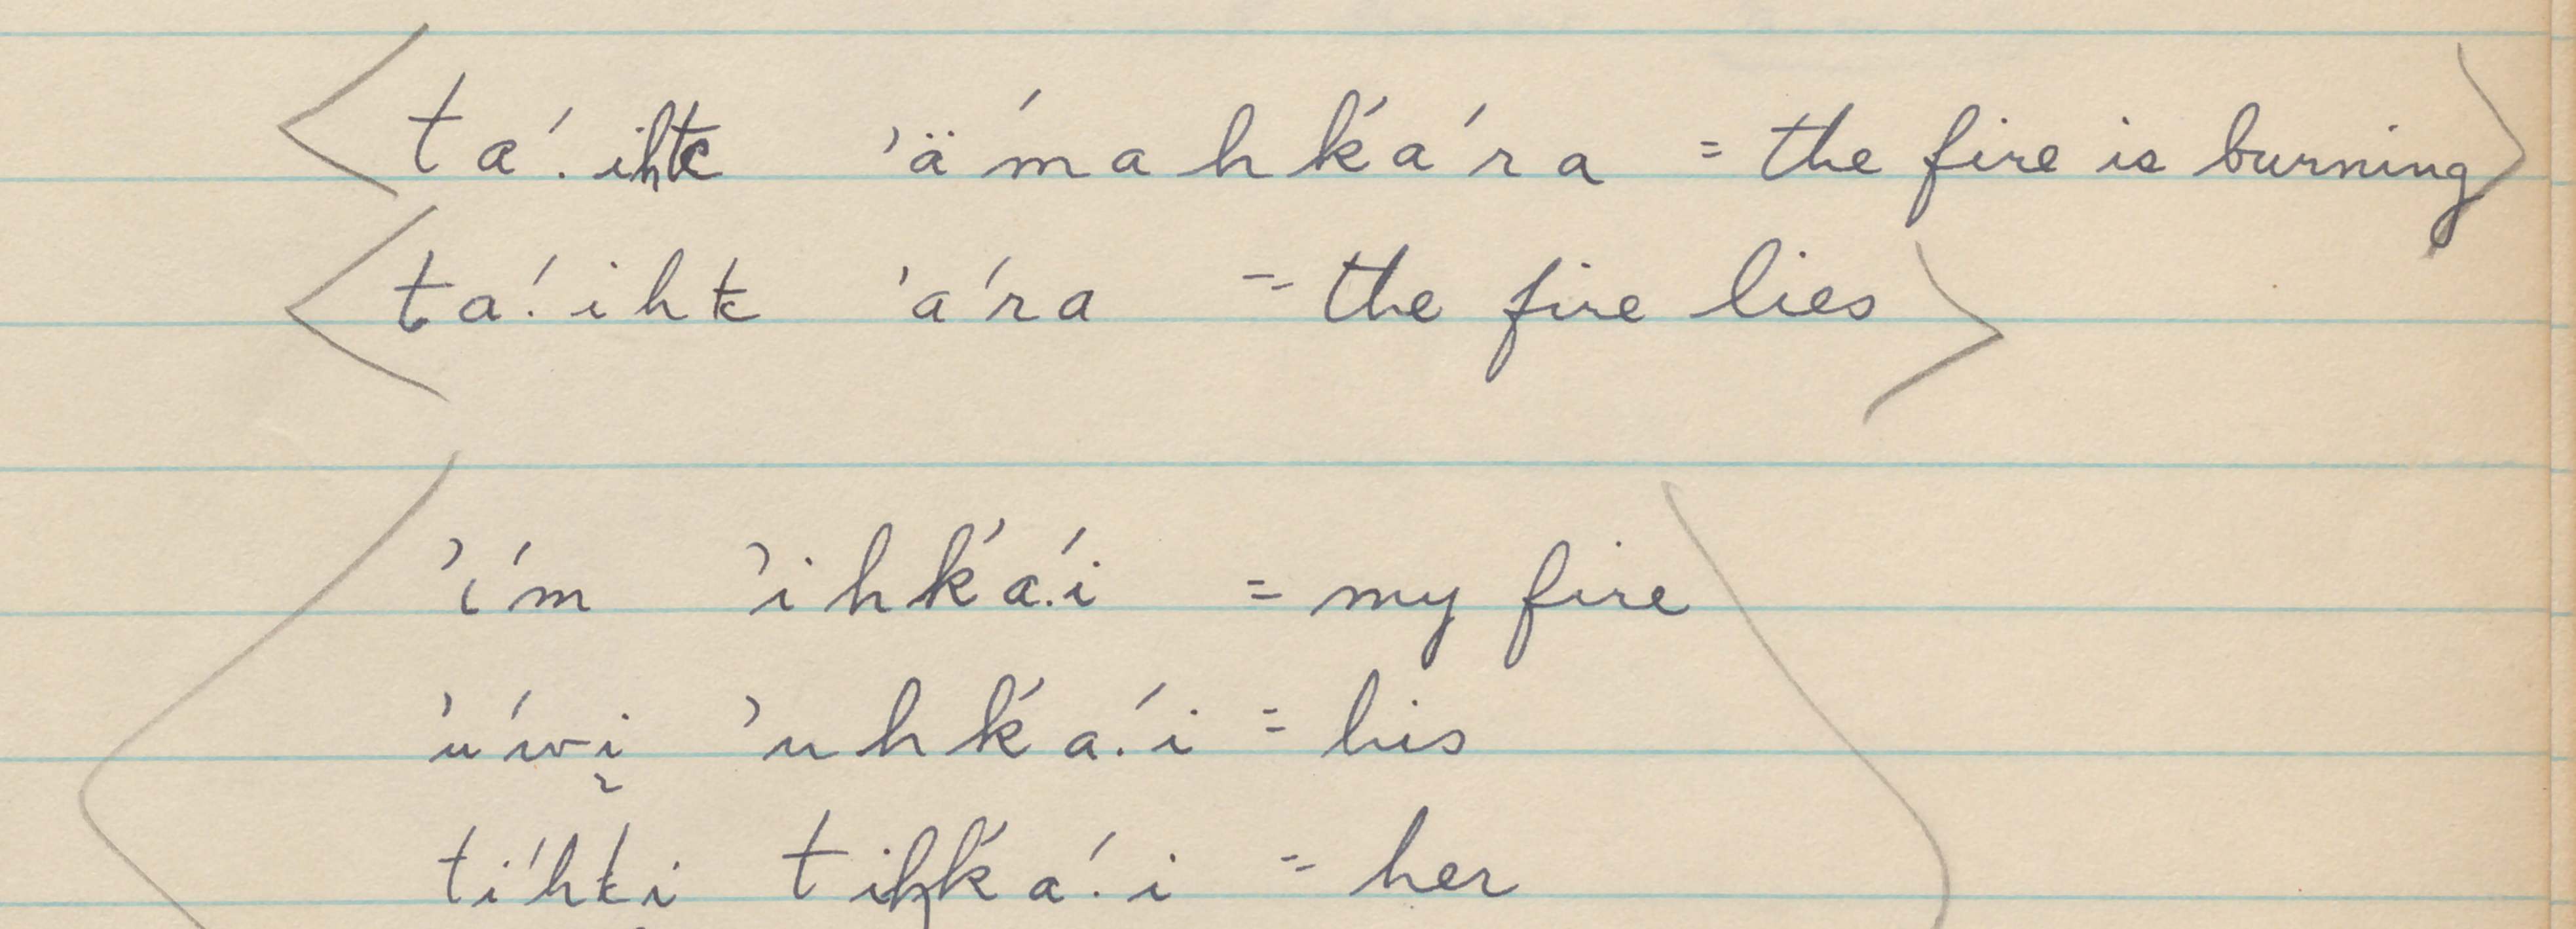 <ta'.ihtc 'ä'mahk'a'ra = the fire is burning>
<ta'.ihtc 'a'ra = the fire lies>
<'i'm 'ihk'a'.i = my fire>
'u'wi̜ 'uhk'a'.i = his
ti'hti tihk'a'.i = her